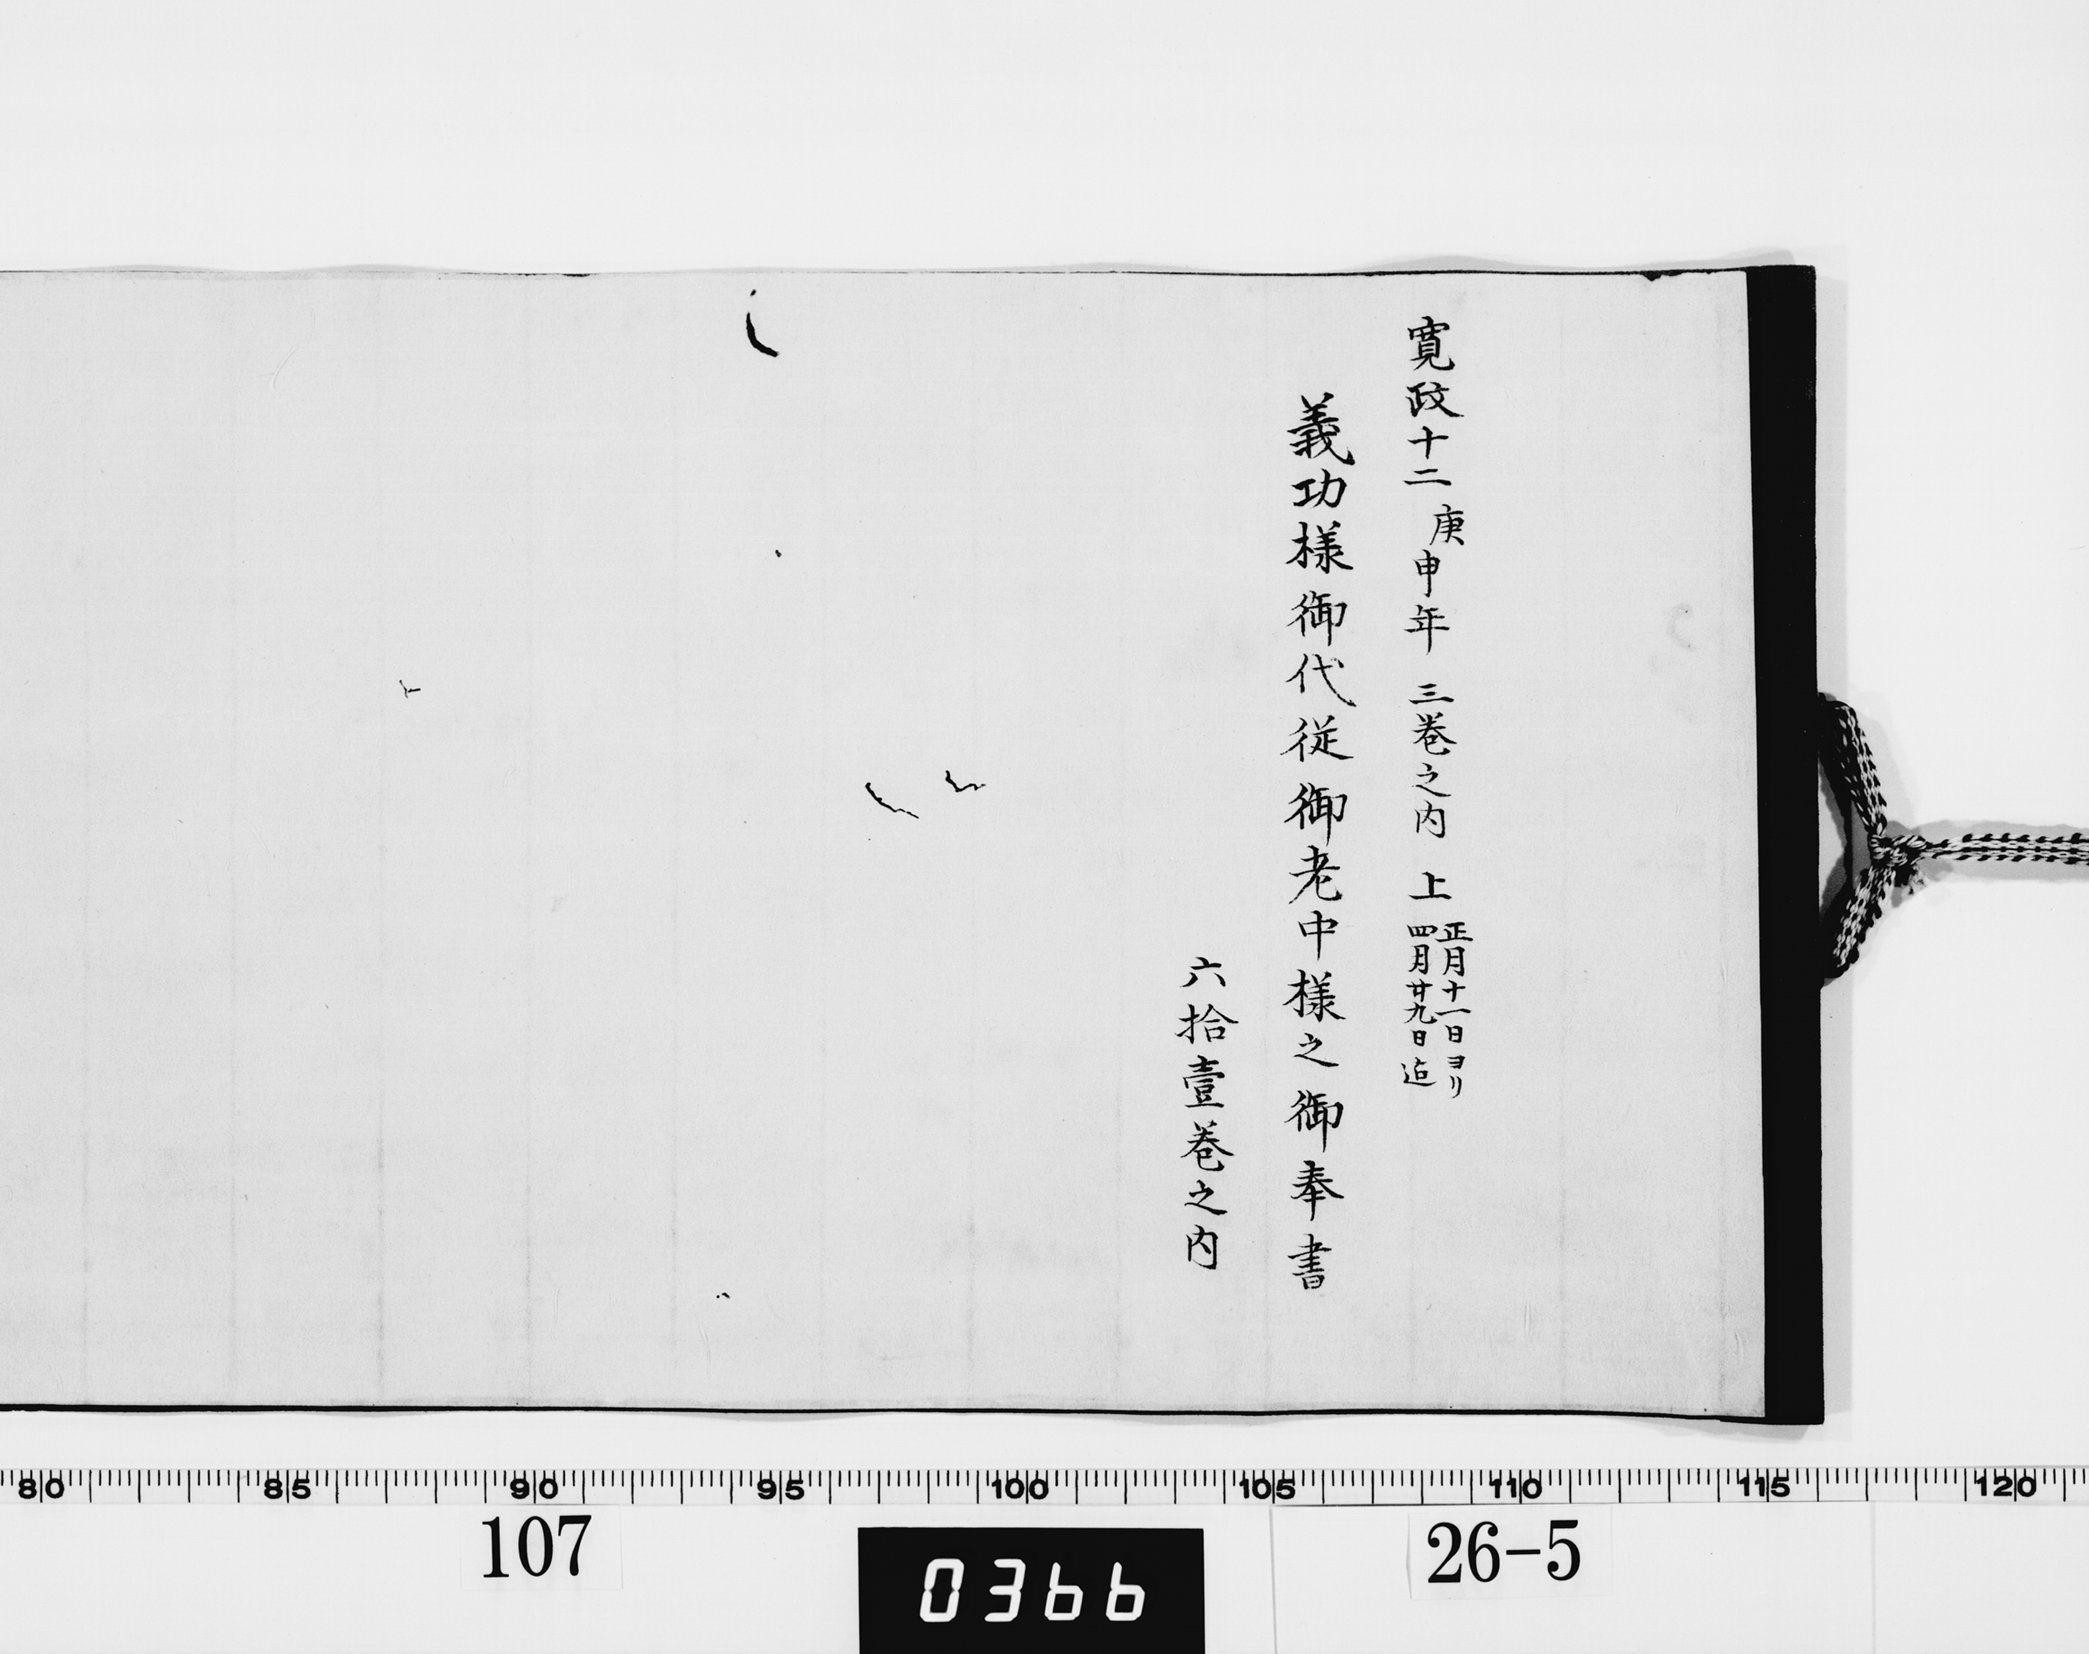 寛政十二庚申年 三巻之内 上 正月十一日ヨリ
四月廿九日迠
義功様御代従御老中様之御奉書
六拾壹巻之内
80 85 90 95 100 105 110 115 120
107
0366
26-5